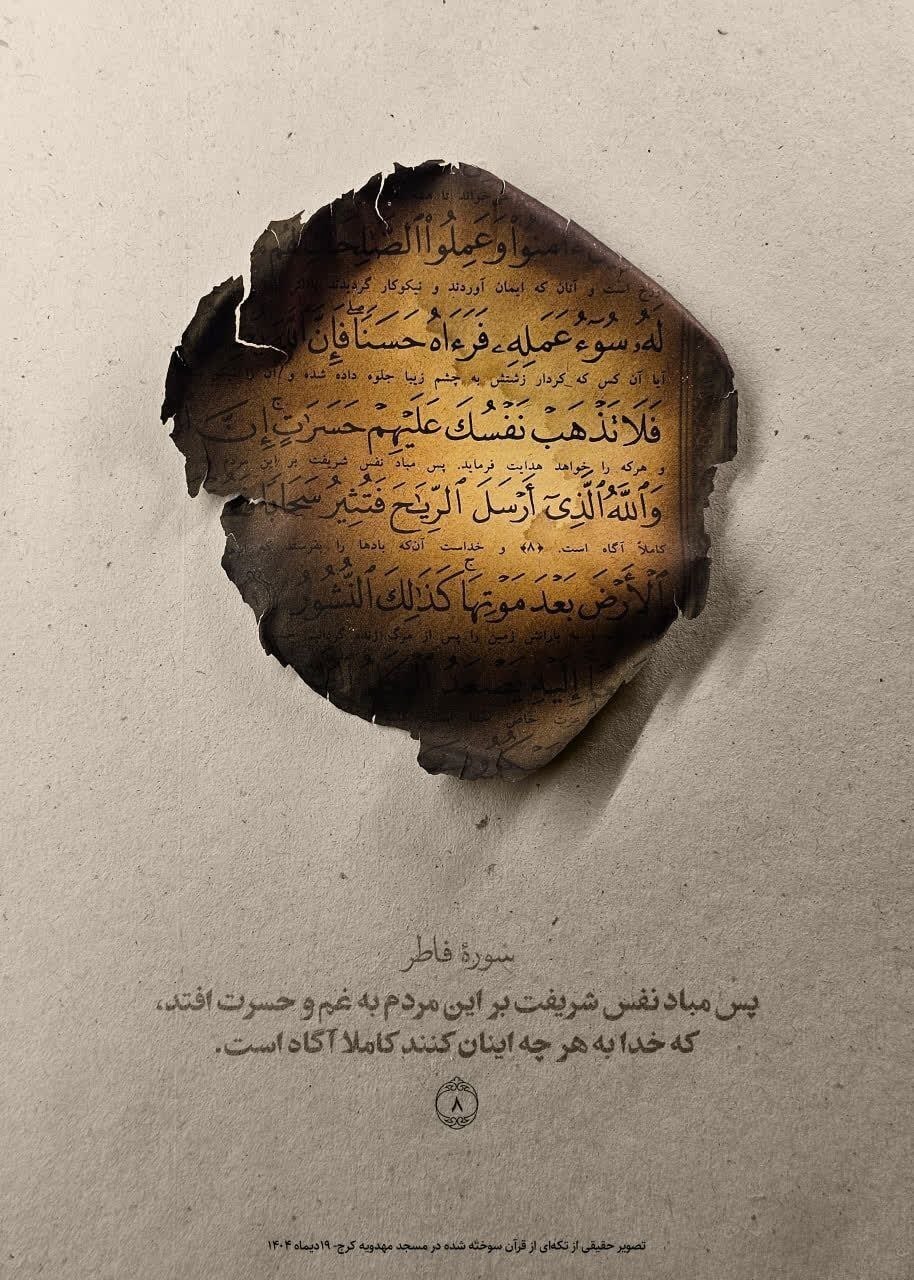 خواند تا همه
ءامنوا وَعَمِلُواْ ٱلصَّٰلِحَٰتِ لَهُم
است و آنان که ایمان آوردند و نیکوکار گردیدند
لَهُۥ سُوٓءُ عَمَلِهِۦ فَرَءَاهُ حَسَنٗاۖ فَإِنَّ ٱللَّهَ
آیا آن کس که کردار زشتش به چشم زیبا جلوه داده شده و آن را
فَلَا تَذۡهَبۡ نَفۡسُكَ عَلَيۡهِمۡ حَسَرَٰتٍۚ إِنَّ
و هرکه را خواهد هدایت فرماید. پس مباد نفس شریفت بر این مردم
وَٱللَّهُ ٱلَّذِيٓ أَرۡسَلَ ٱلرِّيَٰحَ فَتُثِيرُ سَحَابٗا
کاملاً آگاه است. ﴿۸﴾ و خداست آن‌که بادها را بفرستد که
ٱلۡأَرۡضَ بَعۡدَ مَوۡتِهَاۚ كَذَٰلِكَ ٱلنُّشُورُ
به بارانش زمین را پس از مرگ زنده گردانیم
إِلَيۡهِ يَصۡعَدُ
سورهٔ فاطر
پس مباد نفس شریفت بر این مردم به غم و حسرت افتد،
که خدا به هر چه اینان کنند کاملا آگاه است.
۸
تصویر حقیقی از تکه‌ای از قرآن سوخته شده در مسجد مهدویه کرج- ۱۹دیماه ۱۴۰۴